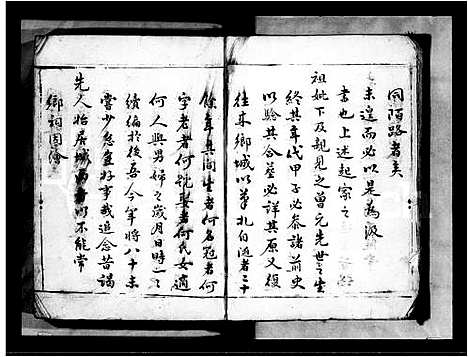 同陌路者矣
未遑而必以是為汲
書也上述起家之
祖妣下及親見之曾元先世之生
終其年代甲子必參諸前史
以驗其合墓必詳其原又復
往來鄉城以筆札自隨者三十
餘年其間生者何名冠者何
字老者何號娶者何氏女適
何人與男婦之歲月日時一一
續編於後吾今年將八十未
嘗少怠豈好事哉追念昔謁
先人怡居城而不能常
鄉祠因會